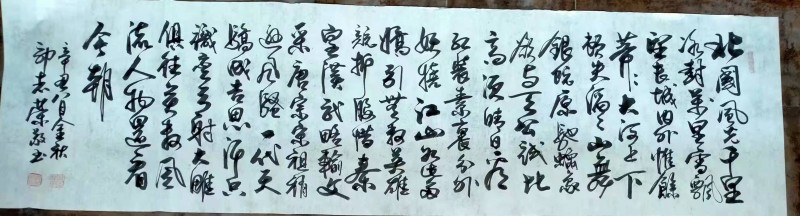 北國風光千里
冰封萬里雪飄
望長城内外惟餘
莽々大河上下
頓失滔々山舞
銀蛇原馳蠟象
欲與天公試比
高須晴日看
紅裝素裹分外
妖嬈江山如此多
嬌引無數英雄
競折腰惜秦
皇漢武略輸文
采唐宗宋祖稍
遜風騷一代天
驕成吉思汗只
識彎弓射大雕
俱往矣數風
流人物還看
今朝
辛丑八月金秋
郭志榮敬书